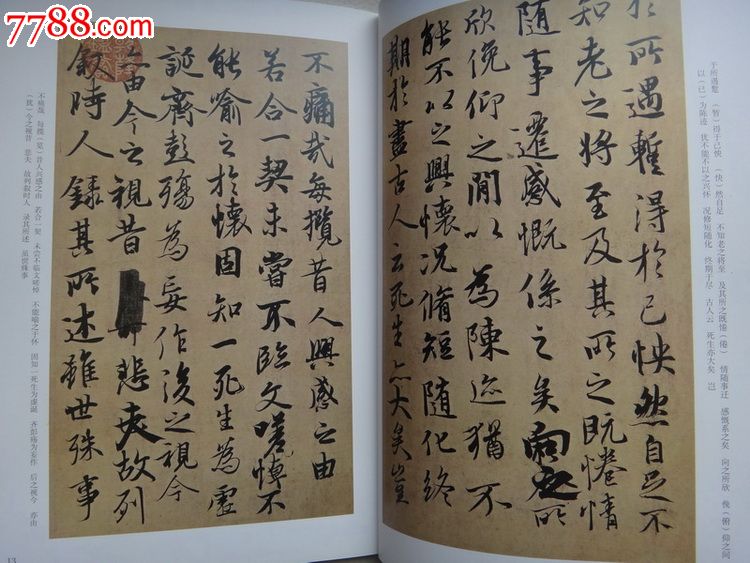 7788.com
于所遇蹔（暂）得于己怏（快）然自足 不知老之将至 及其所之既惓（倦） 情随事迁 感慨系之矣 向之所欣 俛（俯）仰之间
以（已）为陈迹 犹不能不以之兴怀 况修短随化 终期于尽 古人云 死生亦大矣 岂
於所遇蹔得於己怏然自足不
知老之將至及其所之既惓情
隨事遷感慨係之矣向之所
欣俛仰之閒以為陳迹猶不
能不以之興懷况脩短随化終
期於盡古人云死生亦大矣豈
不痛哉每攬昔人興感之由
若合一契未嘗不臨文嗟悼不
能喻之於懷固知一死生為虛
誕齊彭殤為妄作後之視今
亦由今之視昔悲夫故列
叙時人錄其所述雖世殊事
不痛哉 每揽（览）昔人兴感之由 若合一契 未尝不临文嗟悼 不能喻之于怀 固知一死生为虚诞 齐彭殇为妄作 后之视今 亦由
（犹）今之视昔 悲夫 故列叙时人 录其所述 虽世殊事
13